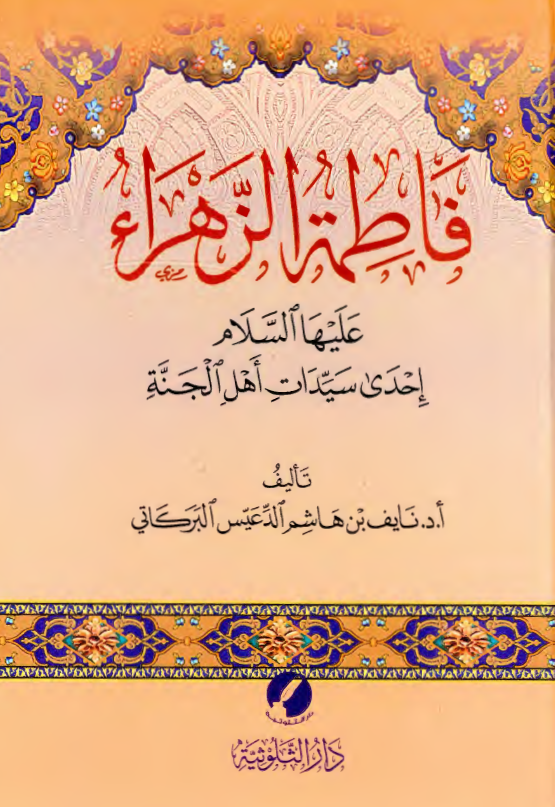 فَاطِمَةُ الزَّهْرَاءُ
عَلَيْهَا ٱلسَّلَام
إِحْدَىٰ سَيِّدَاتِ أَهْلِ ٱلْجَنَّةِ
تَأليفُ
أ.د. نَايف بْن هَاشِم ٱلدِّعَيِّس ٱلبَركَاتي
دار الثلوثية
دَارُ الثَّلُوثِيَّةِ